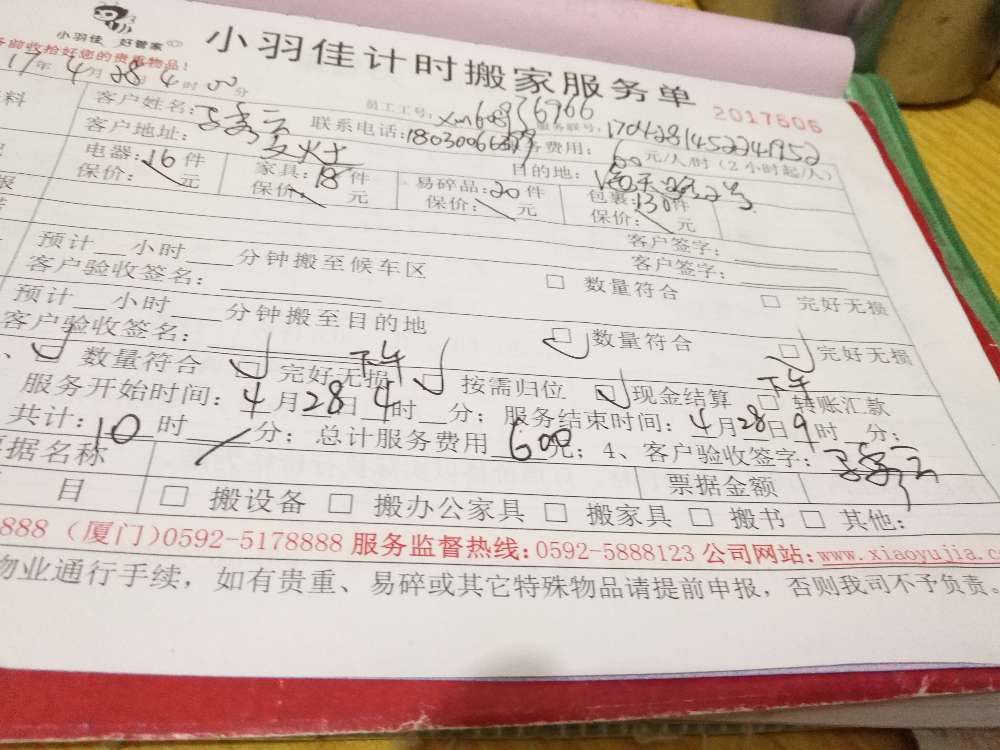 小羽佳 好管家
小羽佳计时搬家服务单
务前收拾好您的贵重物品!
2017505
17年4月28日4时00分
客户姓名: 员工工号: xm60876966 服务联号: 170428145224952
客户地址: 联系电话: 服务费用: 60元/人/时(2小时起/人)
目的地:
电器: 16件 家具: 18件 易碎品: 20件 包裹: 130件
保价: 元 保价: 元 保价: 元 保价: 元
客户签字:
预计 小时 分钟搬至候车区 客户签字:
客户验收签名: □ 数量符合 □ 完好无损
预计 小时 分钟搬至目的地
客户验收签名: □ 数量符合 □ 完好无损
数量符合 □ 完好无损 □ 按需归位 □ 现金结算 □ 转账汇款
服务开始时间: 4月28日下午4时 分; 服务结束时间: 4月28日下午9时 分;
共计: 10时 分; 总计服务费用600元; 4、客户验收签字:
票据名称 票据金额
目 □ 搬设备 □ 搬办公家具 □ 搬家具 □ 搬书 □ 其他:
888(厦门)0592-5178888 服务监督热线: 0592-5888123 公司网站: www.xiaoyujia.c
物业通行手续, 如有贵重、易碎或其它特殊物品请提前申报, 否则我司不予负责。